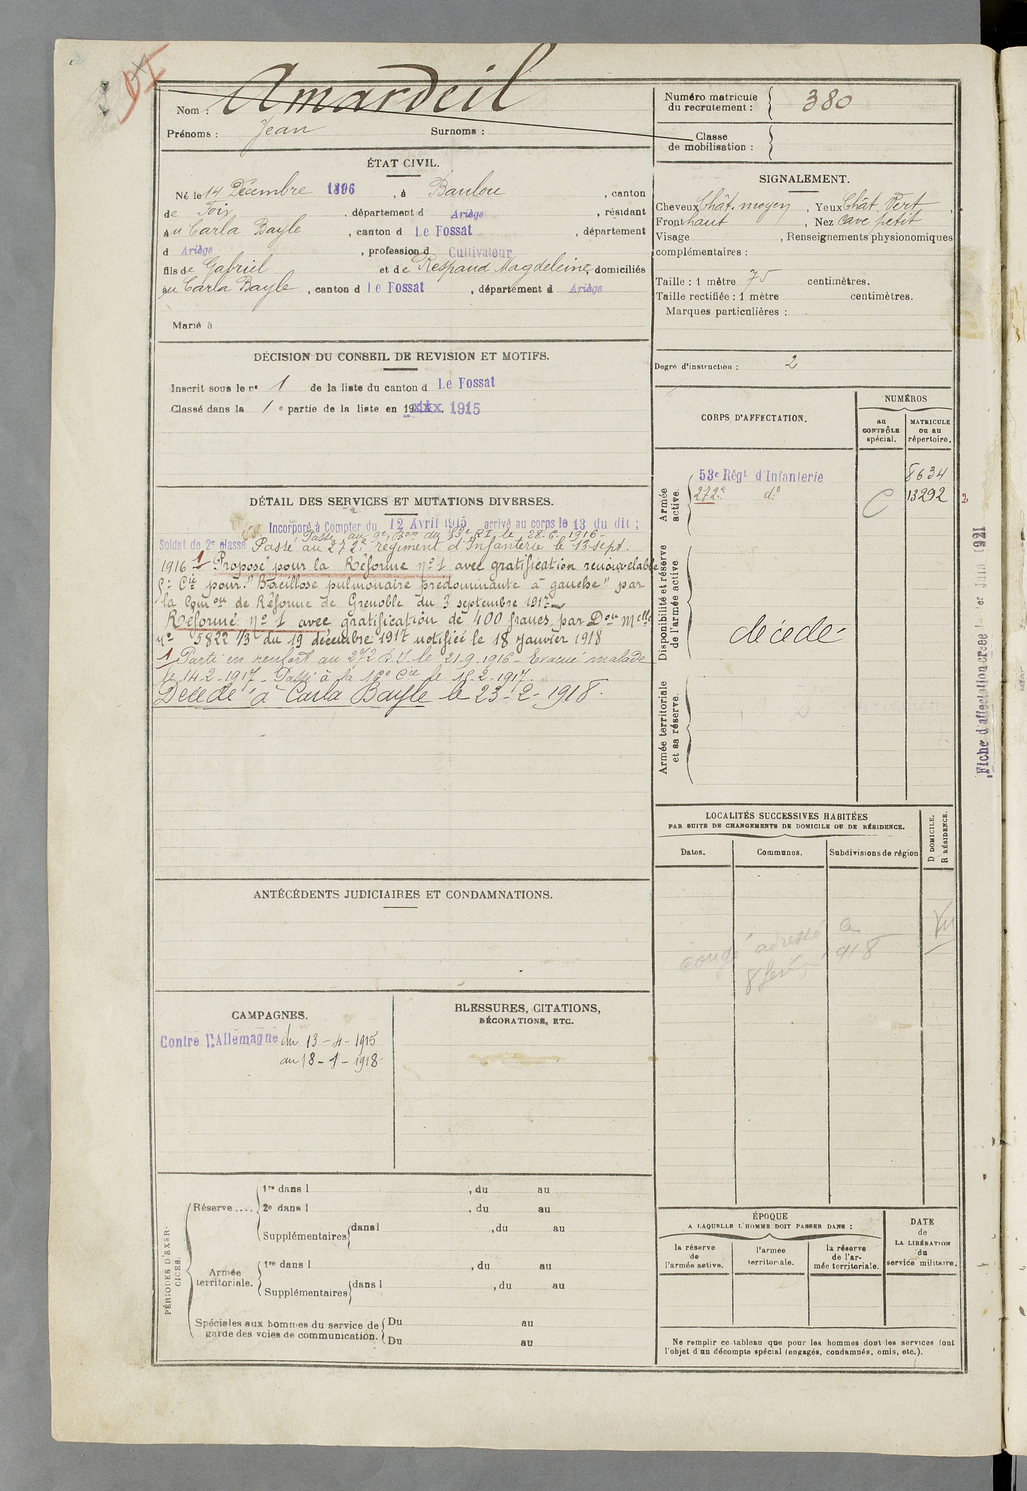 91
Nom : Amardeil
Prénoms : Jean Surnoms :
Numéro matricule du recrutement : 380
Classe de mobilisation :
ÉTAT CIVIL.
Né le 14 Décembre 1896, à Baulou, canton
de Foix, département d Ariège, résidant
au Carla Bayle, canton d Le Fossat, département
d Ariège, profession d Cultivateur
fils de Gabriel et de Respaud Magdeleine, domiciliés
au Carla Bayle, canton d Le Fossat, département d Ariège
Marié à
SIGNALEMENT.
Cheveux Chât. moyen, Yeux Chât. Vert,
Front haut, Nez cave petit
Visage , Renseignements physionomiques
complémentaires :
Taille : 1 mètre 75 centimètres.
Taille rectifiée : 1 mètre centimètres.
Marques particulières :
Degré d'instruction : 2
DÉCISION DU CONSEIL DE REVISION ET MOTIFS.
Inscrit sous le n° 1 de la liste du canton d Le Fossat
Classé dans la 1e partie de la liste en 19xxx. 1915
DÉTAIL DES SERVICES ET MUTATIONS DIVERSES.
Incorporé à Compter du 12 Avril 1915 arrivé au corps le 13 du dit ;
Passé au 9e Bon du 53e RI le 28-6-1916-
Soldat de 2e classe Passé au 272e régiment d'Infanterie le 13 sept.
1916 1 Proposé pour la Réforme n° 1 avec gratification renouvelable
pour "Bacillose pulmonaire prédominante à gauche" par
la Comon de Réforme de Grenoble du 3 septembre 1917
Réformé n° 1 avec gratification de 400 francs par Don Melle
n° 5822/3 du 19 décembre 1917 notifiée le 18 janvier 1918
1 Parti en renfort au 272 R.I. le 21-9-1916- Evacué malade
le 14-2-1917- Passé à la 18e Cie le 15-2-1917.
Décédé à Carla Bayle le 23-2-1918.
CORPS D'AFFECTATION.
NUMÉROS
au CONTRÔLE spécial.
MATRICULE OU AU répertoire.
Armée active.
53e Régt d'Infanterie 8634
272e do C 13292 2
Disponibilité et réserve de l'armée active
décédé
Armée territoriale et sa réserve.
Fiche d'affectation créée le 1er Juin 1921
LOCALITÉS SUCCESSIVES HABITÉES
PAR SUITE DE CHANGEMENTS DE DOMICILE OU DE RÉSIDENCE.
Dates. Communes. Subdivisions de région
D DOMICILE.
R RÉSIDENCE.
congé adressé le
8 fév 918
ANTÉCÉDENTS JUDICIAIRES ET CONDAMNATIONS.
CAMPAGNES.
Contre l'Allemagne du 13-4-1915
au 18-1-1918-
BLESSURES, CITATIONS,
DÉCORATIONS, ETC.
PÉRIODES D'EXERCICES.
Réserve....
1re dans l , du au
2e dans l , du au
Supplémentaires dans l , du au
Armée territoriale.
1re dans l , du au
Supplémentaires dans l , du au
Spéciales aux hommes du service de garde des voies de communication.
Du au
Du au
ÉPOQUE
A LAQUELLE L'HOMME DOIT PASSER DANS :
la réserve de l'armée active.
l'armée territoriale.
la réserve de l'armée territoriale.
DATE de LA LIBÉRATION du service militaire.
Ne remplir ce tableau que pour les hommes dont les services font
l'objet d'un décompte spécial (engagés, condamnés, omis, etc.).